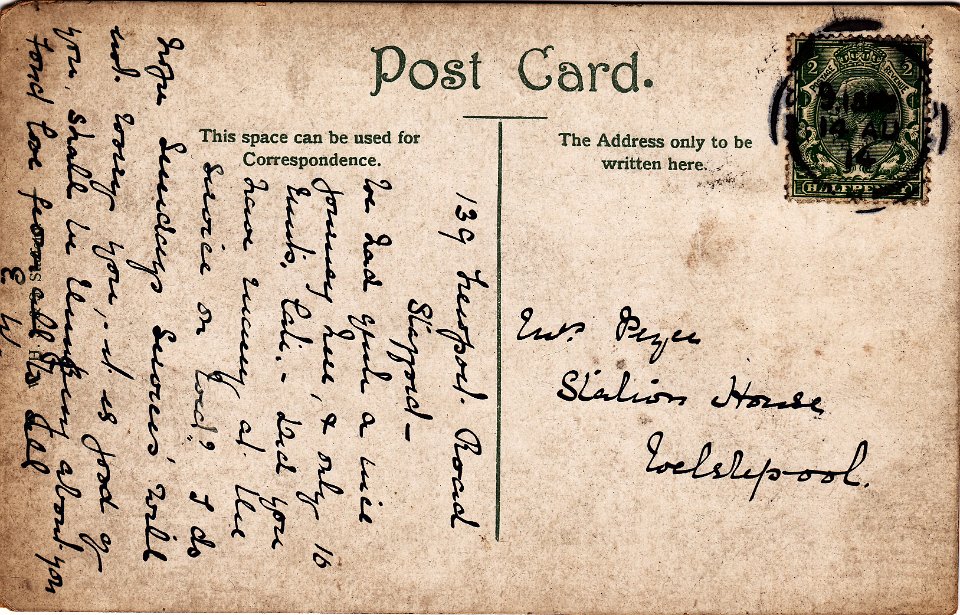 Post Card.
This space can be used for
Correspondence.
The Address only to be
written here.
2 POSTAGE REVENUE 2
HALFPENNY
9.15 PM
14 AU
14
139 Newport Road
Stafford –
We had quite a nice
journey here, & only 16
Cali. – Did you
have many at the
Service on Wed? I do
hope Sundays Services will
you, it is good of
you. Shall be thinking about you
fond love from all to all
E. W.
Mrs. Pryce
Station House
Welshpool.